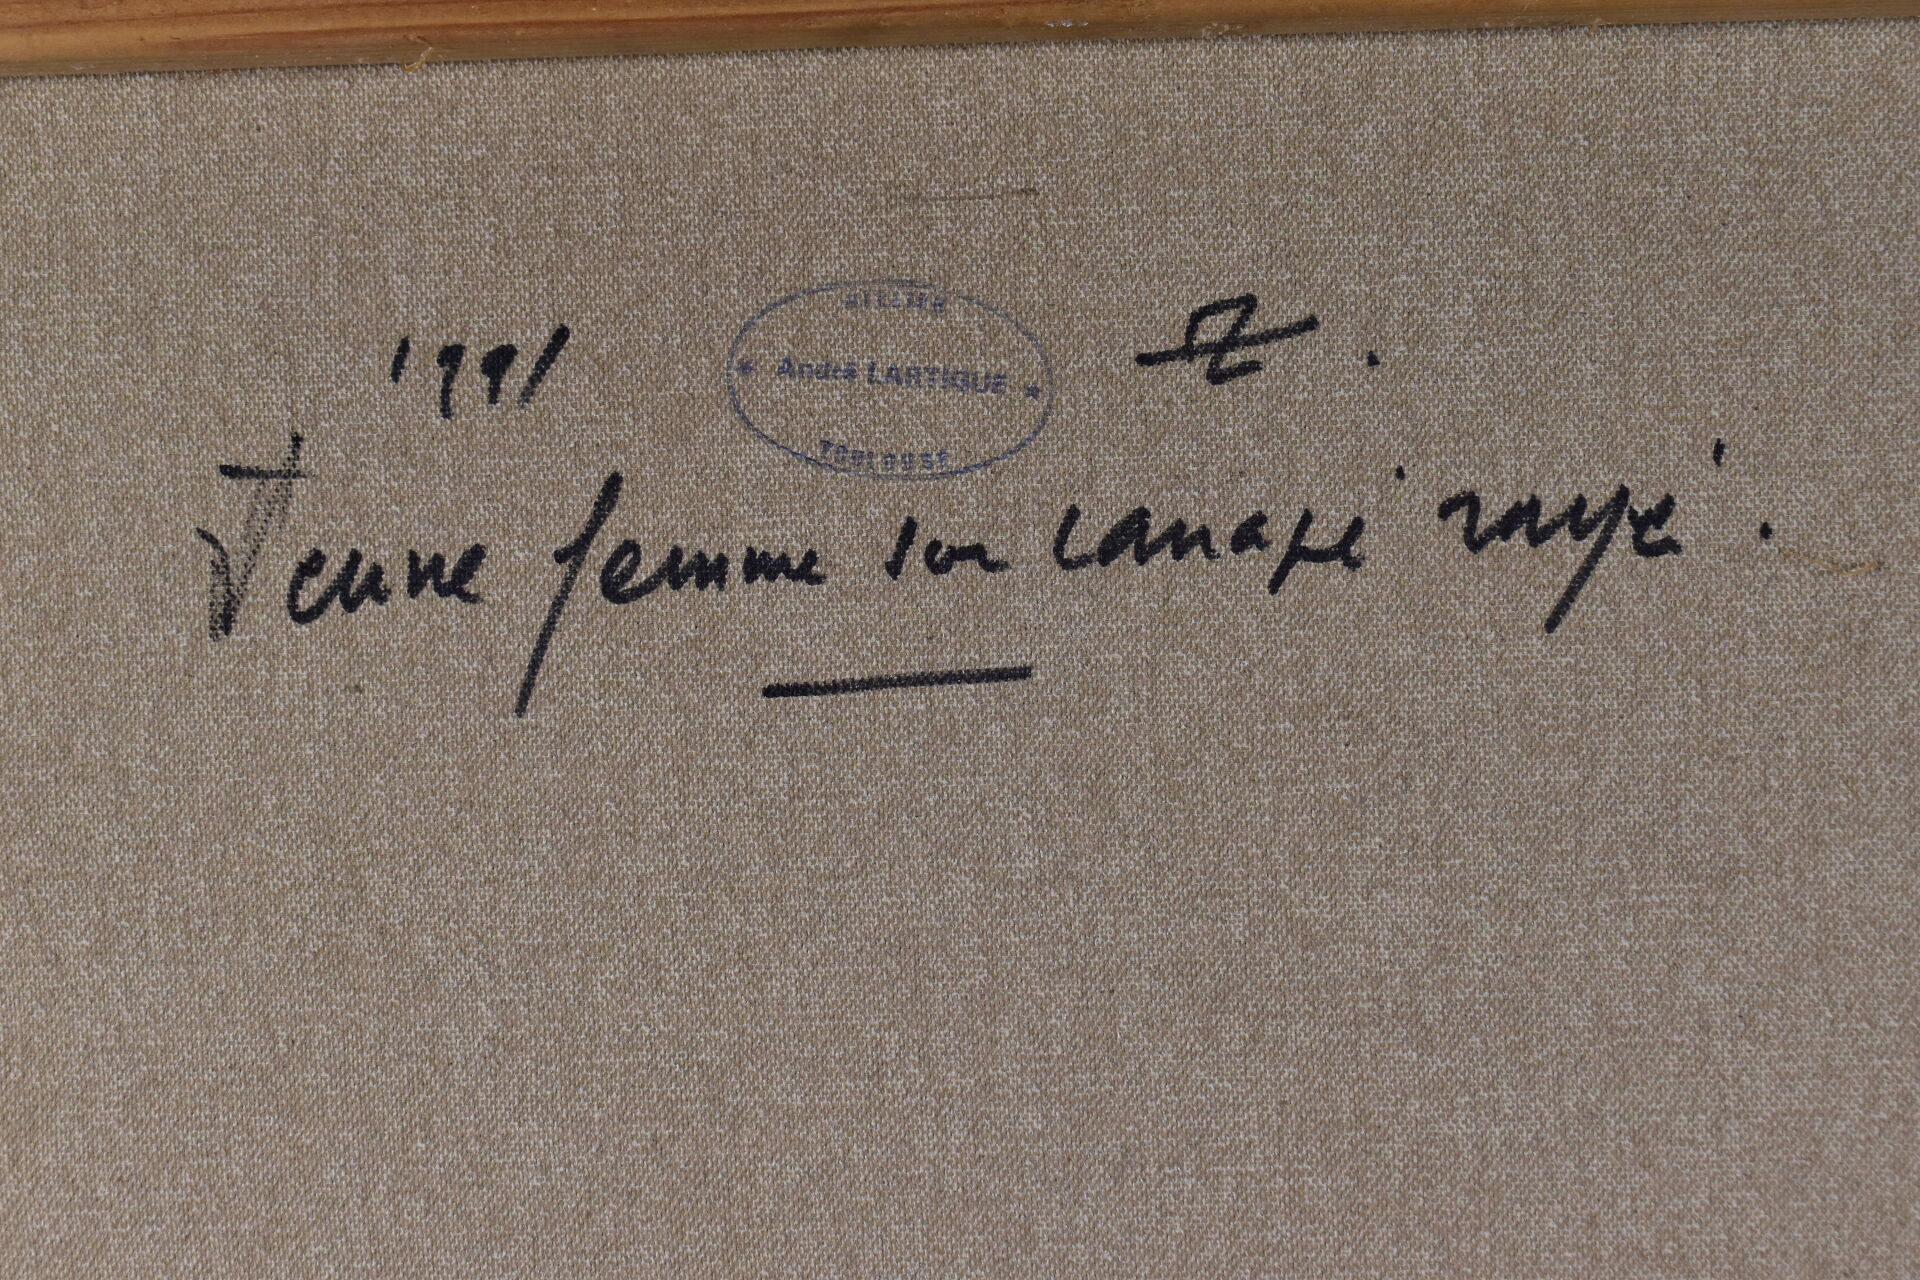 1991
ATELIER
André LARTIGUE
TOULOUSE
Jeune femme sur canapé rayé.